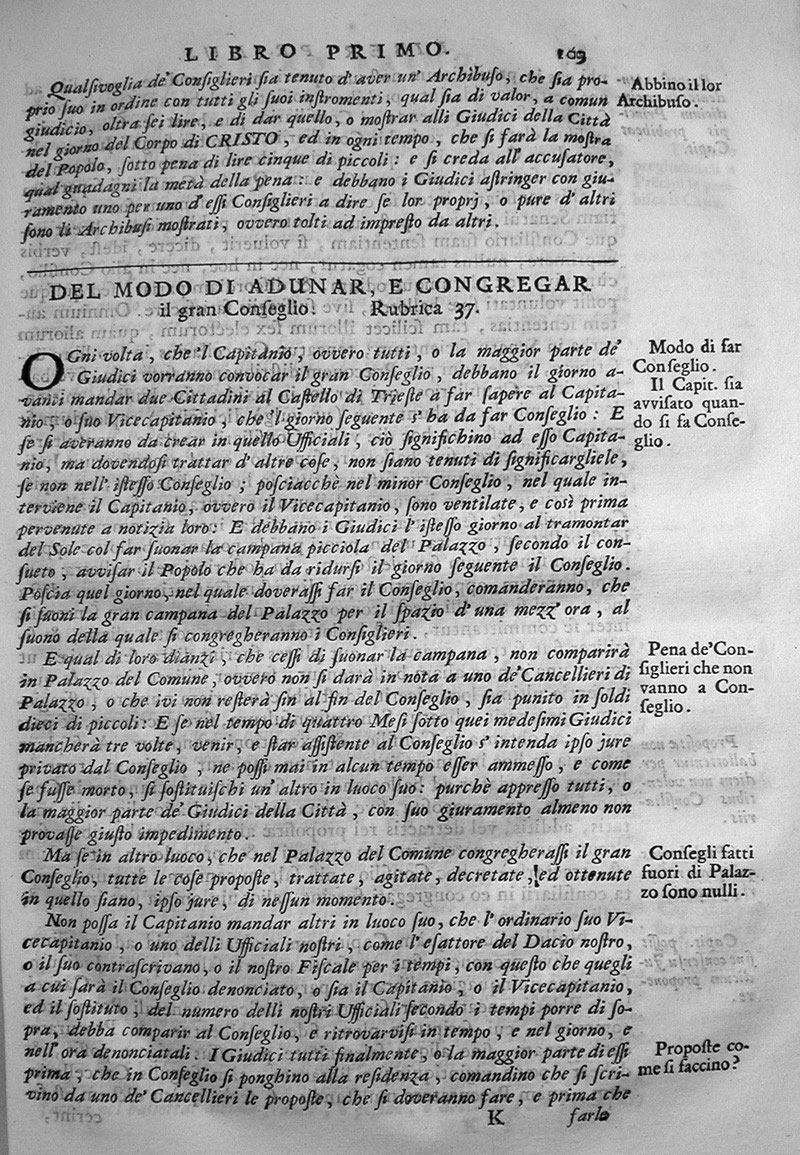 LIBRO PRIMO. 169
Qualſivoglia de' Conſiglieri ſia tenuto d' aver un' Archibuſo, che ſia pro-
prio ſuo in ordine con tutti gli ſuoi inſtromenti, qual ſia di valor, a comun
giudicio, oltra ſei lire, e di dar quello, o moſtrar alli Giudici della Città
nel giorno del Corpo di CRISTO, ed in ogni tempo, che ſi farà la moſtra
del Popolo, ſotto pena di lire cinque di piccoli: e ſi creda all' accuſatore,
qual guadagni la metà della pena: e debbano i Giudici aſtringer con giu-
ramento uno per uno d' eſſi Conſiglieri a dire ſe lor proprj, o pure d' altri
ſono li Archibuſi moſtrati, ovvero tolti ad impreſto da altri.
Abbino il lor
Archibuſo.
DEL MODO DI ADUNAR, E CONGREGAR
il gran Conſeglio. Rubrica 37.
OGni volta, che 'l Capitanio, ovvero tutti, o la maggior parte de'
Giudici vorranno convocar il gran Conſeglio, debbano il giorno a-
vanti mandar due Cittadini al Caſtello di Trieſte a far ſapere al Capita-
nio, o ſuo Vicecapitanio, che 'l giorno ſeguente s' ha da far Conſeglio: E
ſe ſi averanno da crear in quello Ufficiali, ciò ſignifichino ad eſſo Capita-
nio, ma dovendoſi trattar d' altre coſe, non ſiano tenuti di ſignificargliele,
ſe non nell' iſteſſo Conſeglio; poſciacchè nel minor Conſeglio, nel quale in-
terviene il Capitanio, ovvero il Vicecapitanio, ſono ventilate, e così prima
pervenute a notizia loro: E debbano i Giudici l' iſteſſo giorno al tramontar
del Sole col far ſuonar la campana picciola del Palazzo, ſecondo il con-
ſueto, avviſar il Popolo che ha da ridurſi il giorno ſeguente il Conſeglio.
Poſcia quel giorno, nel quale doveraſſi far il Conſeglio, comanderanno, che
ſi ſuoni la gran campana del Palazzo per il ſpazio d' una mezz' ora, al
ſuono della quale ſi congregheranno i Conſiglieri.
Modo di far
Conſeglio.
Il Capit. ſia
avviſato quan-
do ſi fa Conſe-
glio.
E qual di loro dianzi, che ceſſi di ſuonar la campana, non comparirà
in Palazzo del Comune, ovvero non ſi darà in nota a uno de' Cancellieri di
Palazzo, o che ivi non reſterà fin al fin del Conſeglio, ſia punito in ſoldi
dieci di piccoli: E ſe nel tempo di quattro Meſi ſotto quei medeſimi Giudici
mancherà tre volte, venir, e ſtar aſſiſtente al Conſeglio s' intenda ipſo jure
privato dal Conſeglio, ne poſſi mai in alcun tempo eſſer ammeſſo, e come
ſe fuſſe morto, ſi ſoſtituiſchi un' altro in luoco ſuo: purchè appreſſo tutti, o
la maggior parte de' Giudici della Città, con ſuo giuramento almeno non
provaſſe giuſto impedimento.
Pena de' Con-
ſiglieri che non
vanno a Con-
ſeglio.
Ma ſe in altro luoco, che nel Palazzo del Comune congregheraſſi il gran
Conſeglio, tutte le coſe propoſte, trattate, agitate, decretate, ed ottenute
in quello ſiano, ipſo jure, di neſſun momento.
Conſegli fatti
fuori di Palaz-
zo ſono nulli.
Non poſſa il Capitanio mandar altri in luoco ſuo, che l' ordinario ſuo Vi-
cecapitanio, o uno delli Ufficiali noſtri, come l' eſattore del Dacio noſtro,
o il ſuo contraſcrivano, o il noſtro Fiſcale per i tempi, con queſto che quegli
a cui ſarà il Conſeglio denonciato, o ſia il Capitanio, o il Vicecapitanio,
ed il ſoſtituto, del numero delli noſtri Ufficiali ſecondo i tempi porre di ſo-
pra, debba comparir al Conſeglio, e ritrovarviſi in tempo, e nel giorno, e
nell' ora denonciatali. I Giudici tutti finalmente, o la maggior parte di eſſi
prima, che in Conſeglio ſi ponghino alla reſidenza, comandino che ſi ſcri-
vino da uno de' Cancellieri le propoſte, che ſi doveranno fare, e prima che
Propoſte co-
me ſi faccino?
K farlo